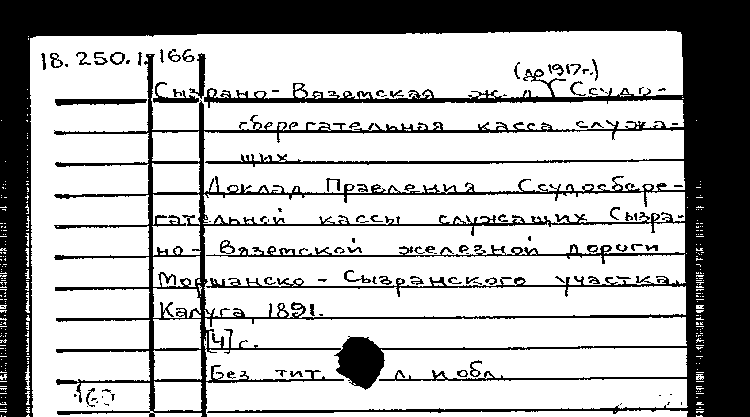 18.250.1.166.
(до 1917 г.)
Сызрано-Вяземская ж. д. Ссудо-
сберегательная касса служа-
щих.
Доклад Правления Ссудосбере-
гательной кассы служащих Сызра-
но-Вяземской железной дороги
Моршанско-Сызранского участка.
Калуга, 1891.
[4] с.
Без тит. л. и обл.
160